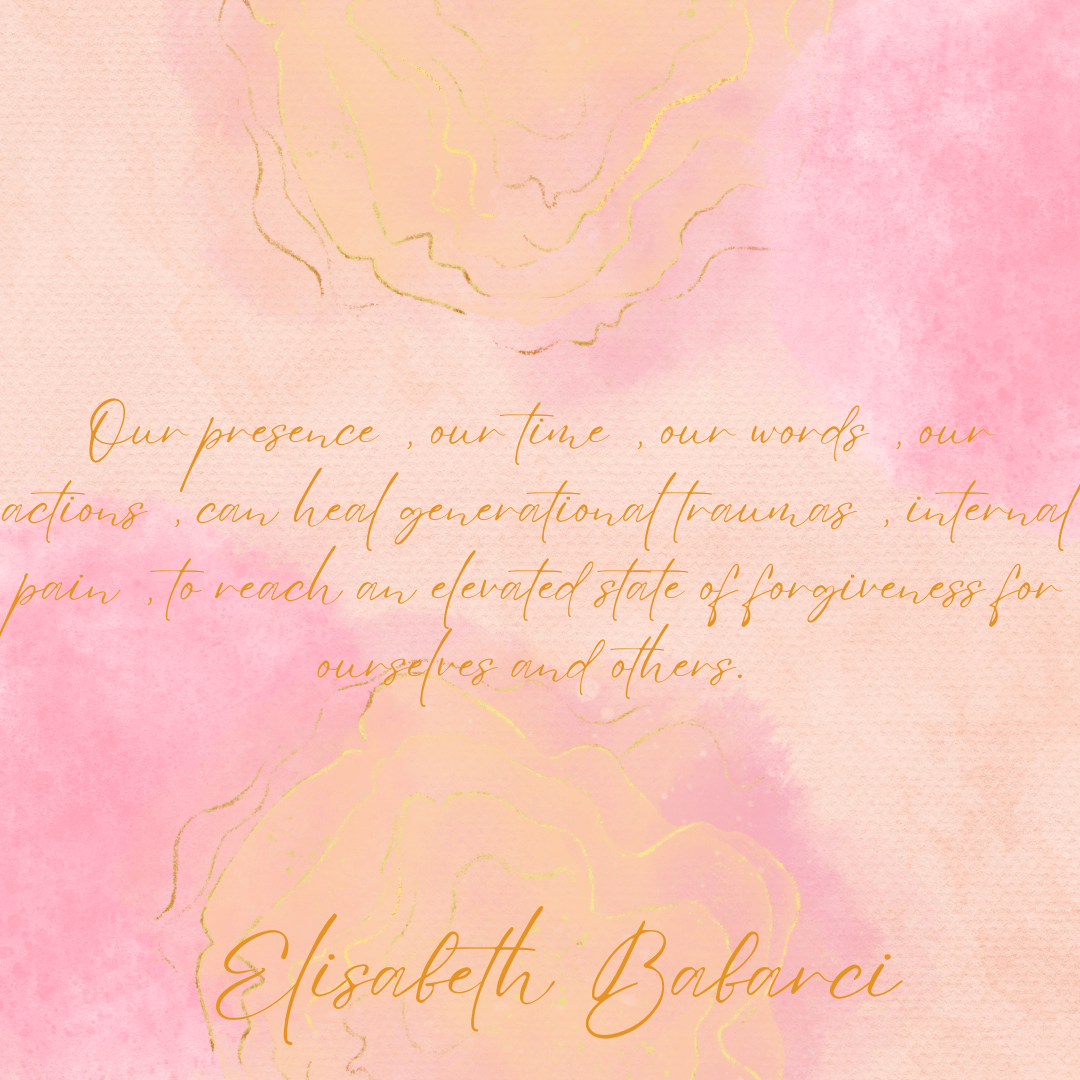 Our presence , our time , our words , our
actions , can heal generational traumas , internal
pain , to reach an elevated state of forgiveness for
ourselves and others.
Elisabeth Babarci